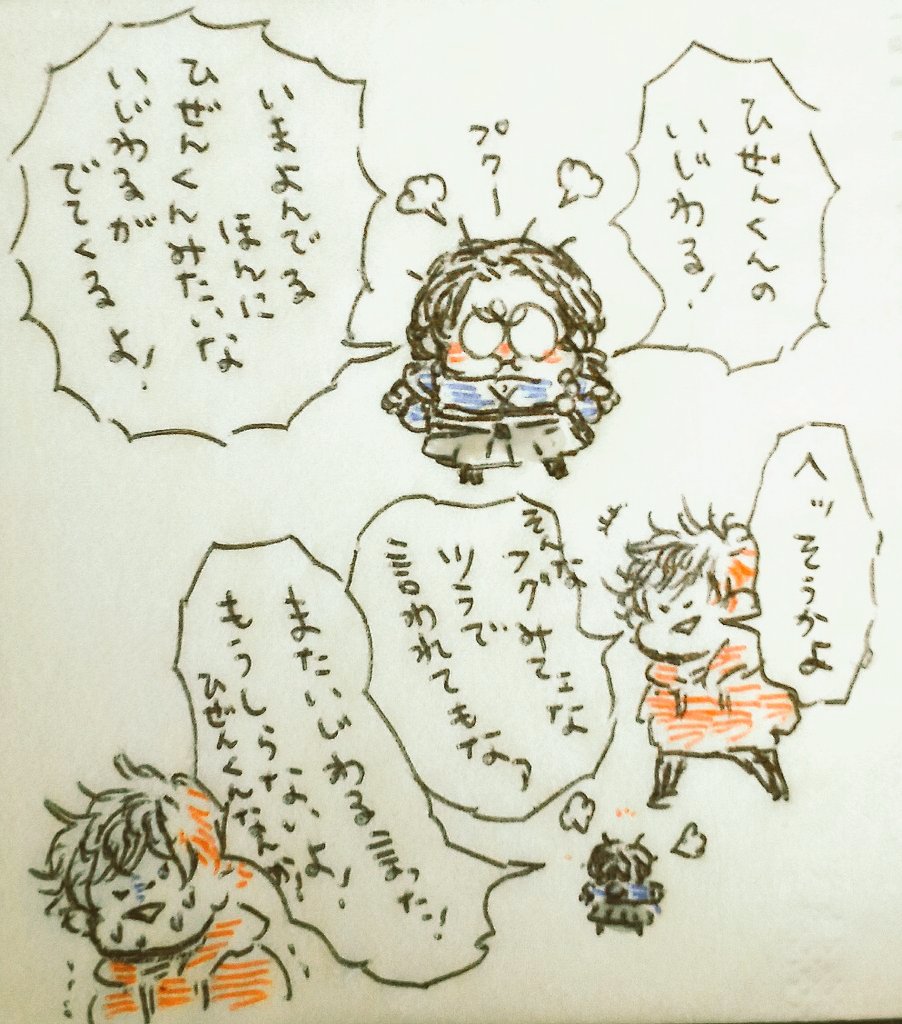 ひぜんくんの
いじわる!
プクー
いまよんでる
ほんに
ひぜんくんみたいな
いじわるが
でてくるよ!
ヘッそうかよ
そんな
フグみてェな
ツラで
言われてもなァ
またいじわる言った!
もうしらないよ!
ひぜんくんなんか!